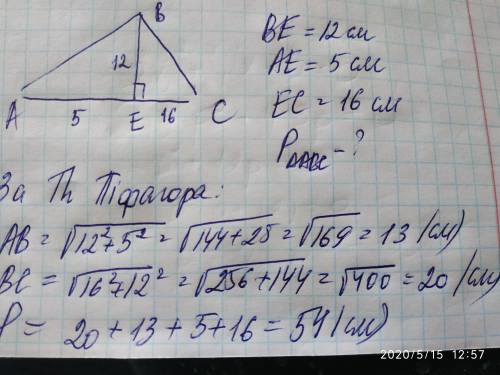 B
BE = 12 см
12
AE = 5 см
A 5 E 16 C
EC = 16 см
P△ABC - ?
За Th Піфагора:
AB = √12²+5² = √144+25 = √169 = 13 (см)
BC = √16²+12² = √256+144 = √400 = 20 (см)
P = 20 + 13 + 5 + 16 = 54 (см)
2020/5/15 12:57